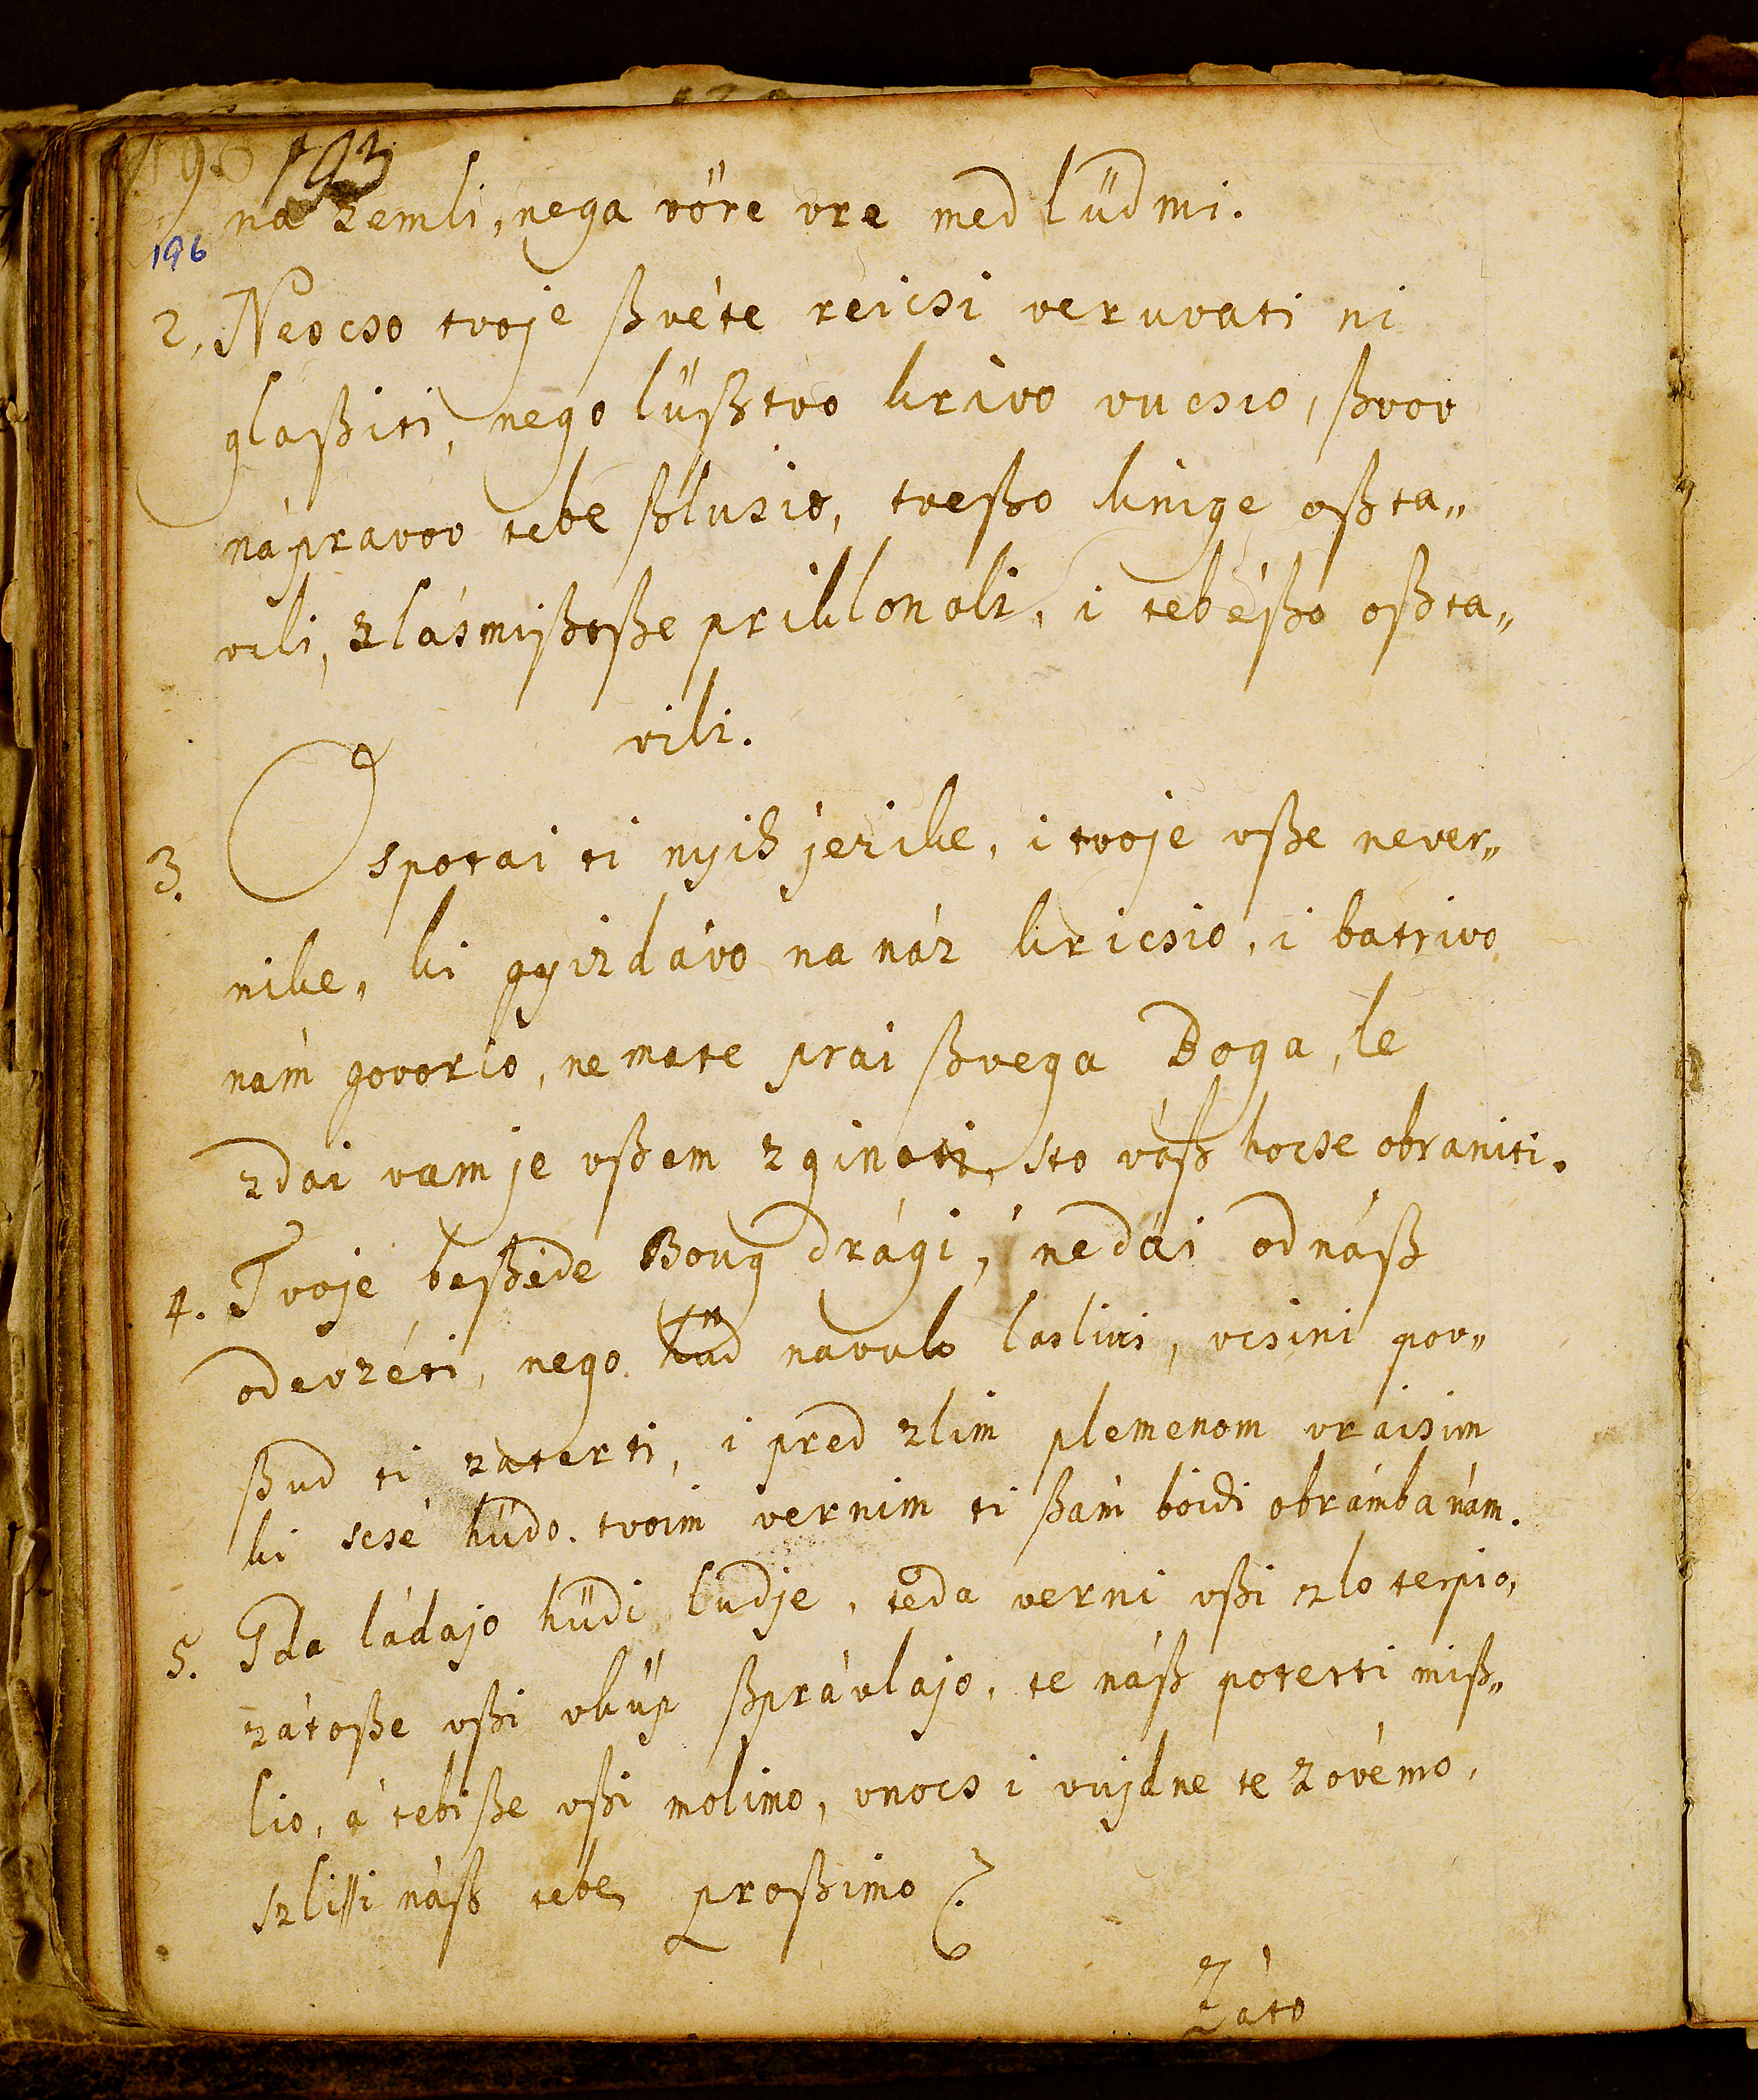 193
196
na zemli, nega vöre vre med lüdmi.
2, Neocso tvoje ßvéte réicsi veruvati ni
glaßiti, nego lüßtvo krivo vucsio, ßvov
nápravov tebé ßlusio, tveßo knige oßta„
vili, zlásmißoße priklonoli, i tebéßo oßta„
vili.
3. Ospotai ti nyih jezike, i tvoje vße never„
nike, ki gyizdávo na náz kricsio, i batrivo
nám govorio, nemate prai ßvega Boga, le
zdai vam je vßem zginoti, sto váß hocse obraniti.
4. Tvoje beßéde Boug drági, nedái odnáß
odevzéti, nego hüd navuk laslivi, vcsini pov„
ßud ti zaterti, i pred zlim plemenom vraisim
ki scsé hüdo. tvoim vernim ti ßám boidi obrámba nám.
5. Gda ládajo hüdi ludje, teda verni vßi zlo terpio,
zátoße vßi vküp ßprávlajo, te náß poterti miß„
lio, á tebiße vßi molimo, vnocs i vujdne te zovémo,
szlissi náß tebe proßimo
Záto